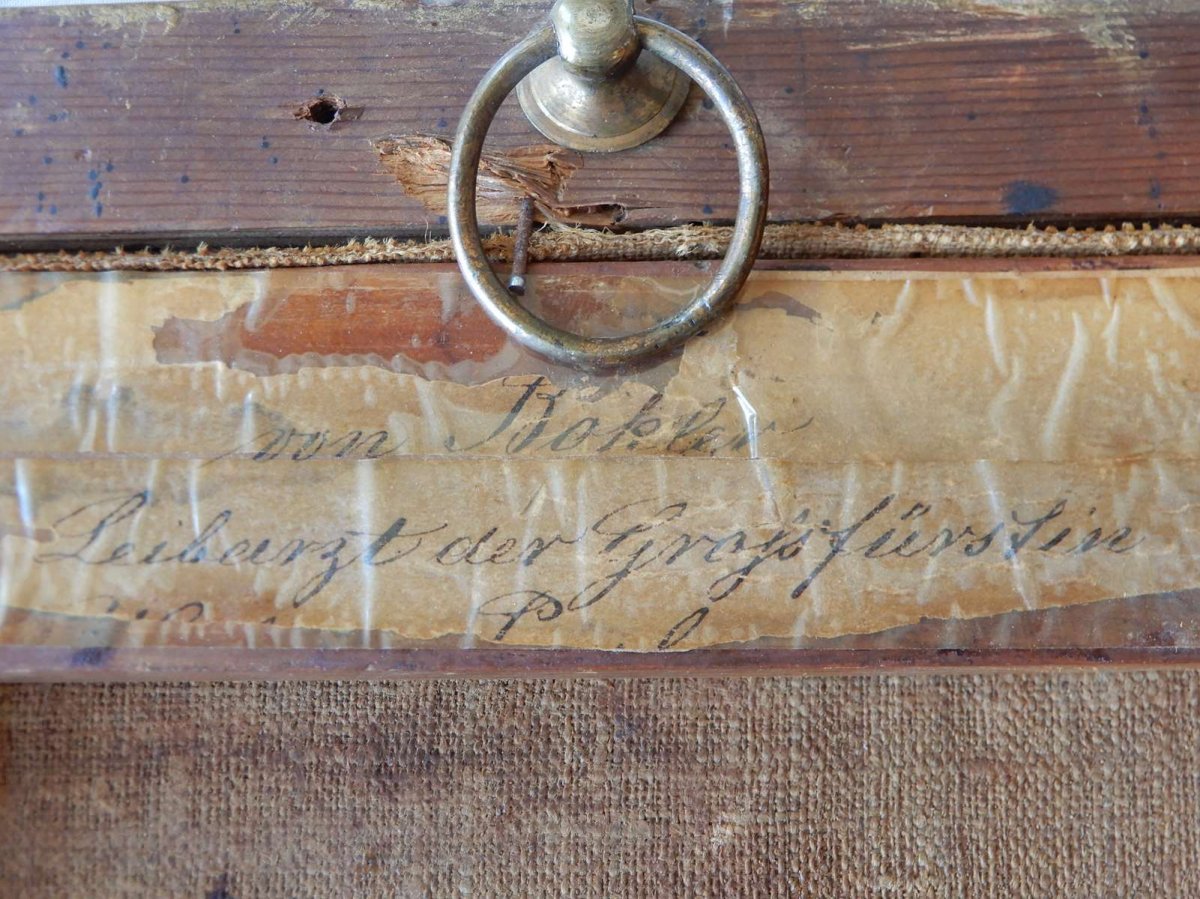 von Köhler
Leibarzt der Großfürstin